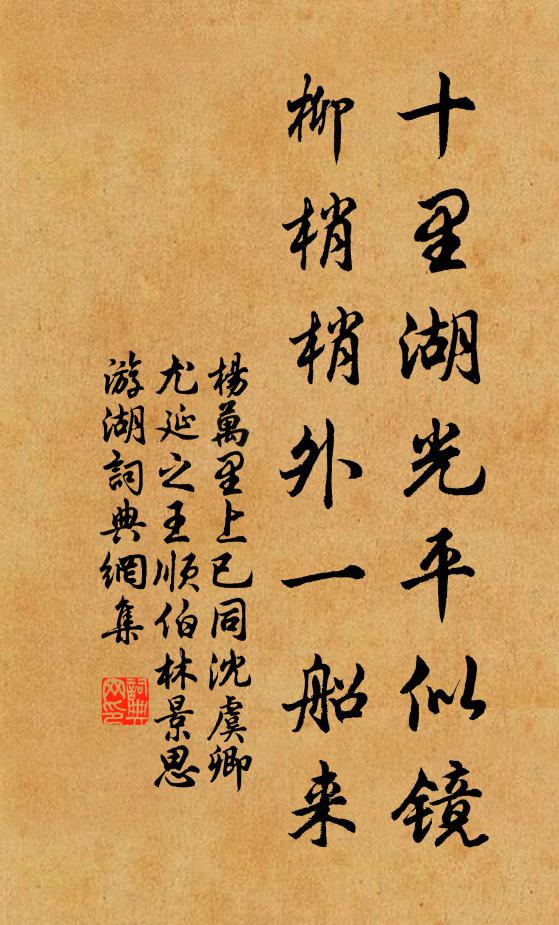 十里湖光平似镜
柳梢梢外一船来
楊萬里上巳同沈虞卿
尤延之王順伯林景思
游湖詞典網集
詞典
网印